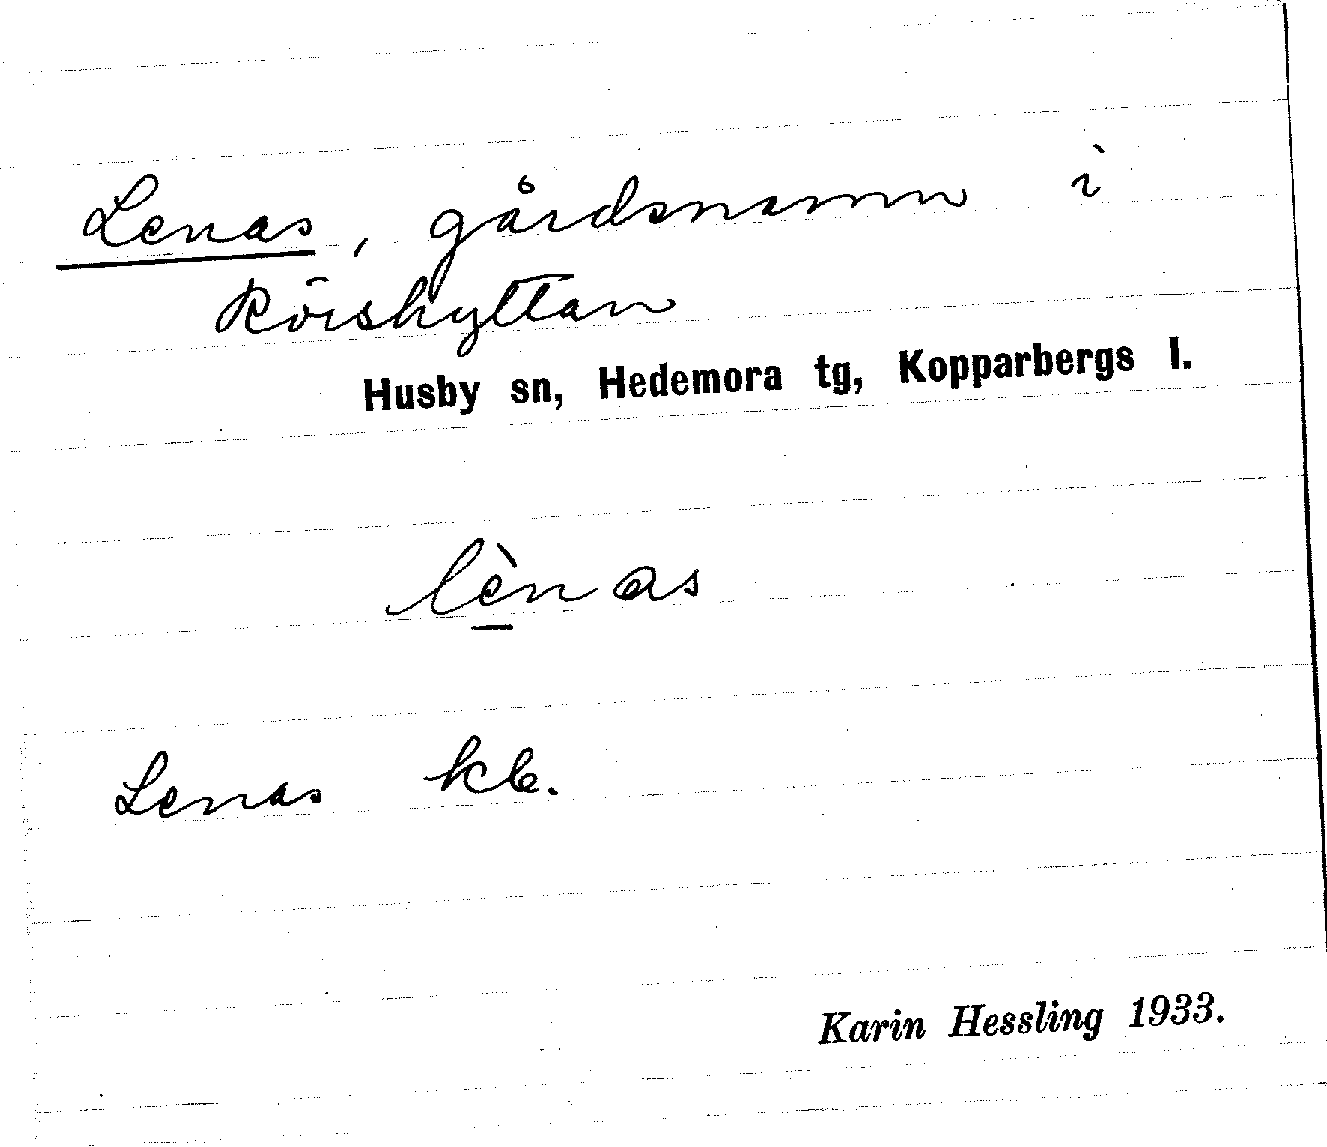 Lenas, gårdsnamn i
Rörshyttan
Husby sn, Hedemora tg, Kopparbergs l.
lènas
Lenas kb.
Karin Hessling 1933.